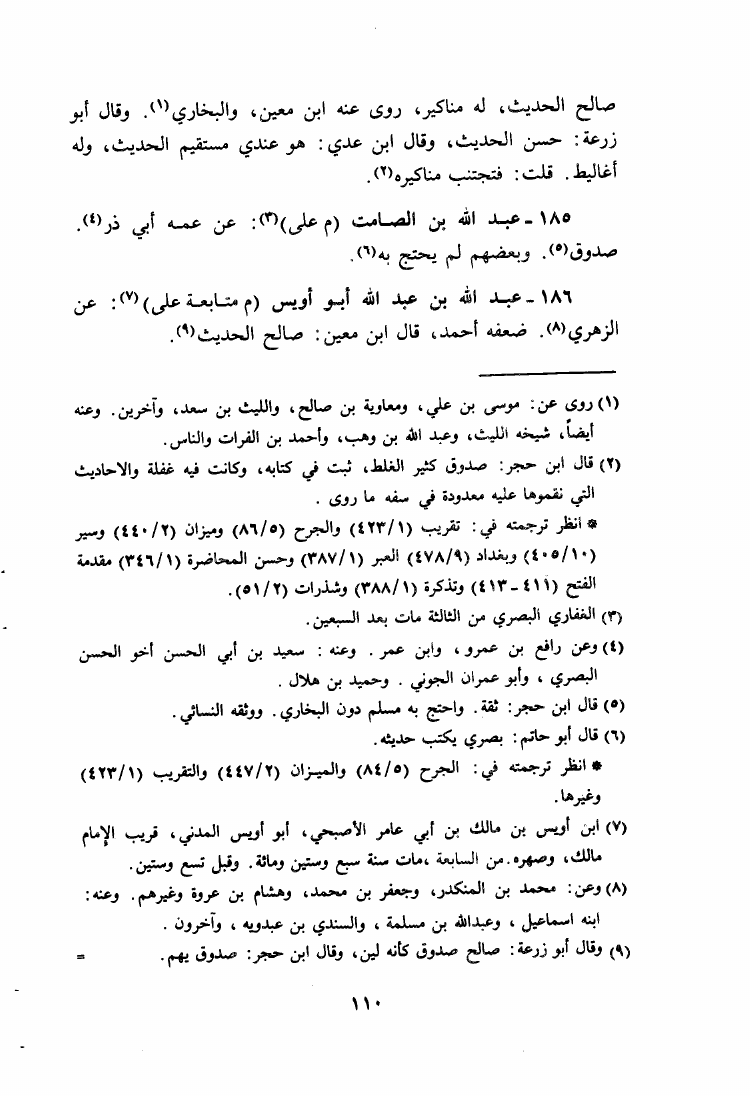 صالح الحديث، له مناكير، روى عنه ابن معين، والبخاري(١). وقال أبو
زرعة: حسن الحديث، وقال ابن عدي: هو عندي مستقيم الحديث، وله
أغاليط. قلت: فتجتنب مناكيره(٢).
١٨٥ - عبد الله بن الصامت (م على)(٣): عن عمه أبي ذر(٤).
صدوق(٥). وبعضهم لم يحتج به(٦).
١٨٦ - عبد الله بن عبد الله أبو أويس (م متابعة على)(٧): عن
الزهري(٨). ضعفه أحمد، قال ابن معين: صالح الحديث(٩).
(١) روى عن: موسى بن علي، ومعاوية بن صالح، والليث بن سعد، وآخرين. وعنه
أيضاً، شيخه الليث، وعبد الله بن وهب، وأحمد بن الفرات والناس.
(٢) قال ابن حجر: صدوق كثير الغلط، ثبت في كتابه، وكانت فيه غفلة والاحاديث
التي نقموها عليه معدودة في سفه ما روى .
* انظر ترجمته في: تقريب (٤٢٣/١) والجرح (٨٦/٥) وميزان (٤٤٠/٢) وسير
(٤٠٥/١٠) وبغداد (٤٧٨/٩) العبر (٣٨٧/١) وحسن المحاضرة (٣٤٦/١) مقدمة
الفتح (٤١١ - ٤١٣) وتذكرة (٣٨٨/١) وشذرات (٥١/٢).
(٣) الغفاري البصري من الثالثة مات بعد السبعين.
(٤) وعن رافع بن عمرو، وابن عمر. وعنه: سعيد بن أبي الحسن أخو الحسن
البصري ، وأبو عمران الجوني . وحميد بن هلال .
(٥) قال ابن حجر: ثقة. واحتج به مسلم دون البخاري. ووثقه النسائي.
(٦) قال أبو حاتم: بصري يكتب حديثه.
* انظر ترجمته في: الجرح (٨٤/٥) والميزان (٤٤٧/٢) والتقريب (٤٢٣/١)
وغيرها.
(٧) ابن أويس بن مالك بن أبي عامر الأصبحي، أبو أويس المدني، قريب الإمام
مالك، وصهره. من السابعة ،مات سنة سبع وستين ومائة. وقبل تسع وستين.
(٨) وعن: محمد بن المنكدر، وجعفر بن محمد، وهشام بن عروة وغيرهم. وعنه:
ابنه اسماعيل ، وعبدالله بن مسلمة ، والسندي بن عبدويه ، وآخرون .
(٩) وقال أبو زرعة: صالح صدوق كأنه لين، وقال ابن حجر: صدوق يهم. =
١١٠